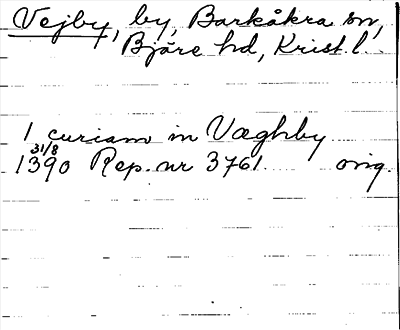 Vejby, by, Barkåkra sn,
Bjäre hd, Krist. l.
1 curiam in Væghby
31/8
1390 Rep. nr 3761. orig.